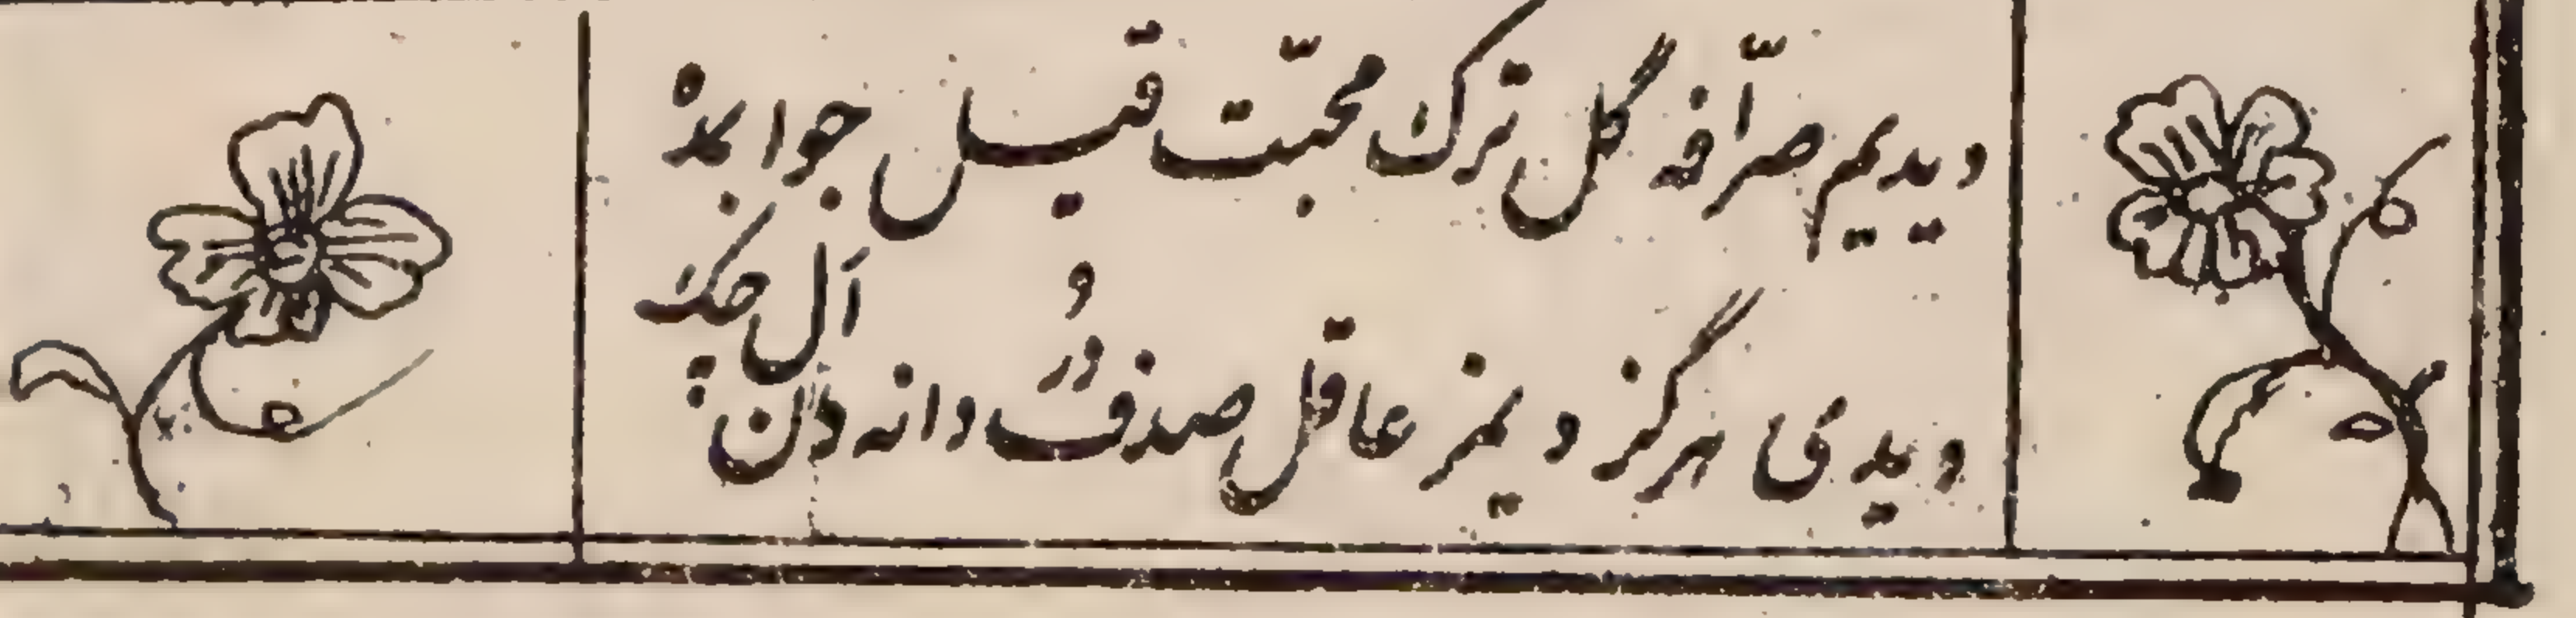 دیدیم صرّافه گل ترک محبّت قیل جوابده
دیدی هرگز دیمز عاقل صدف دُر و دانه دن آل چک